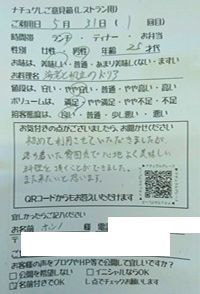 ナチュグレご意見箱(レストラン用)
ご利用日 5月31日( 1 回目)
時間帯 ランチ・ディナー・お弁当
性別 女性 男性 年齢 25 才代
お味は、美味しい・普通・あまり美味しくない・まずい
お料理名 海老と帆立のドリア
値段は、安い・やや安い・普通・やや高い・高い
ボリュームは 満足・やや満足・やや不足・不足
接客態度は、良い・普通・少し悪い・悪い
お気付きの点がございましたら、お聞かせください
初めて利用させていただきましたが
落ち着いた雰囲気で心地よく美味しい
料理を頂くことができました。
また来たいと思います。
QRコードからもお答えいただけます
宜しかったらご記入ください
お名前 様
お客様の声をブログやHP等で公開して宜しいですか?
□公開を希望しない □イニシャルならOK
□名前付きでOK しるしでチェックお願いします